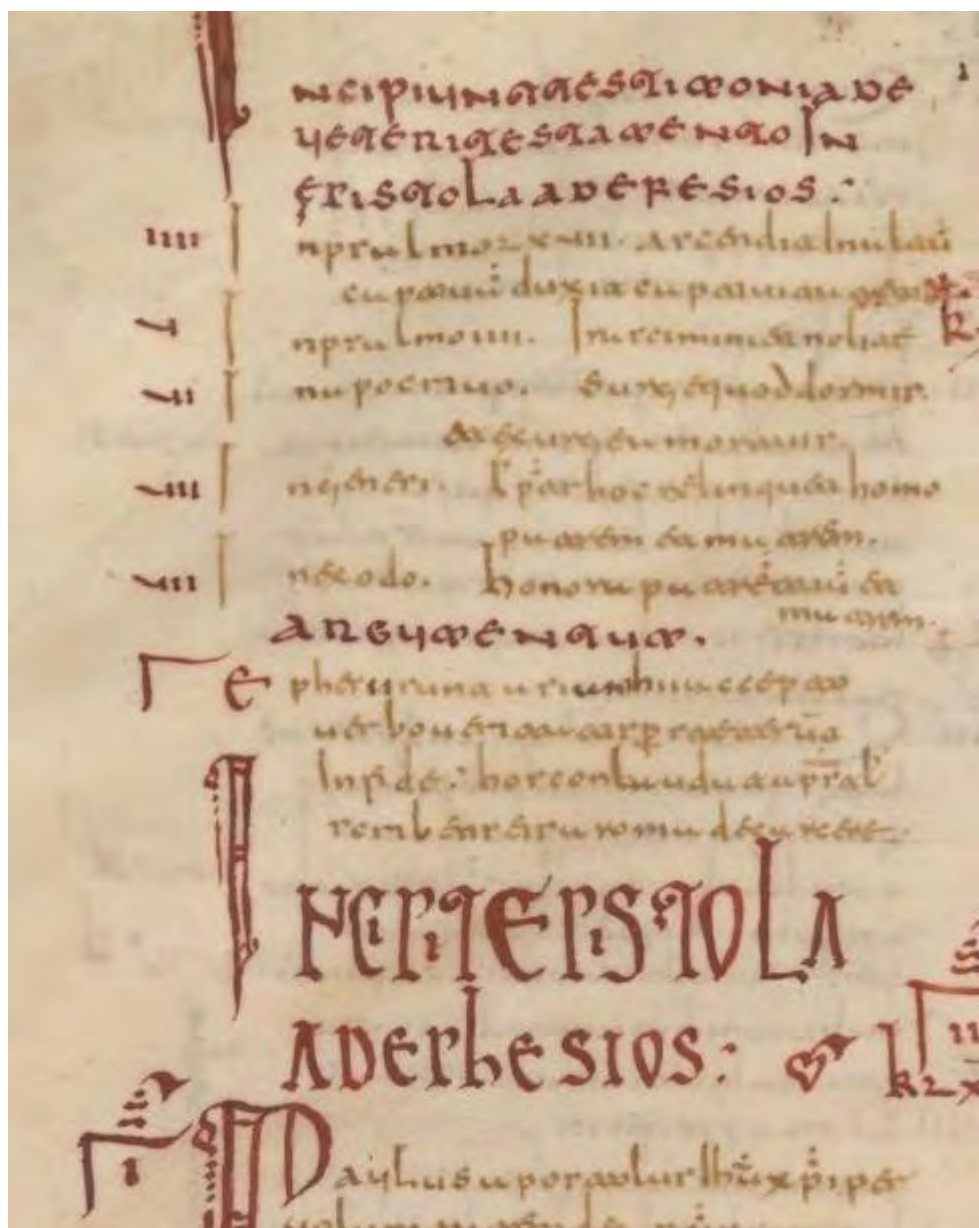 INCIPIUNT TESTIMONIA DE
VETERI TESTAMENTO IN
EPISTOLA AD EFESIOS:
IIII In psalmo LXVII. Ascendit in
captivā duxit
V In psalmo IIII. Irascimini et nolite
VI In apocrifo. Surge quod dormis
et exurge a mortuis.
VII In genesi. hoc relinquet homo
patrem et matrem.
VIII In exodo. Honora patrem tuū et
matrem.
ARGUMENTUM.
Ephesii sunt asiani hii accepto
verbo veritatis
In fide: hos conlaudat
scribens eis a roma de carcere.
INCIPIT EPISTOLA
AD EPHESIOS:
I Paulus apostolus ihū xp̄i per